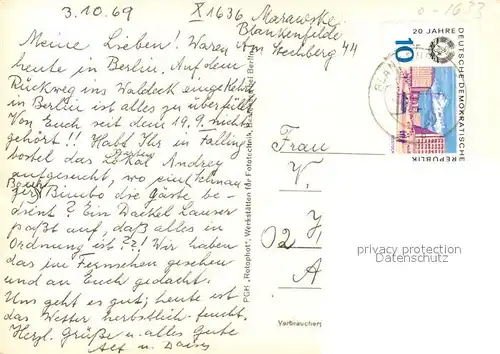 3.10.69
X1636 Marawske
Blankenfelde
Am Lechberg 44
Meine Lieben! Waren
heute in Berlin. Auf dem
Rückweg ins Waldeck eingekehrt
in Berlin ist alles zu überfüllt
Von Euch seit dem 19.9. nichts
gehört!! Habt Ihr in Falling
bostel das Lokal Andrey
aufgesucht, wo ein
Bimbo die Gäste be-
? Ein Dackel
paßt auf, daß alles in
Ordnung ist??! Wir haben
das im Fernsehen gesehen
und an Euch gedacht.
Uns geht es gut; heute ist
das Wetter herbstlich-feucht.
Herzl. Grüße u. alles Gute
PGH „Rotophot", Werkstätten für Fototechnik, Bestensee
0-1633
20 JAHRE
DEUTSCHE DEMOKRATISCHE
REPUBLIK
10
Frau
V.
H
02
A
Verbraucherp
privacy protection
AnsichtskartenVersand.com